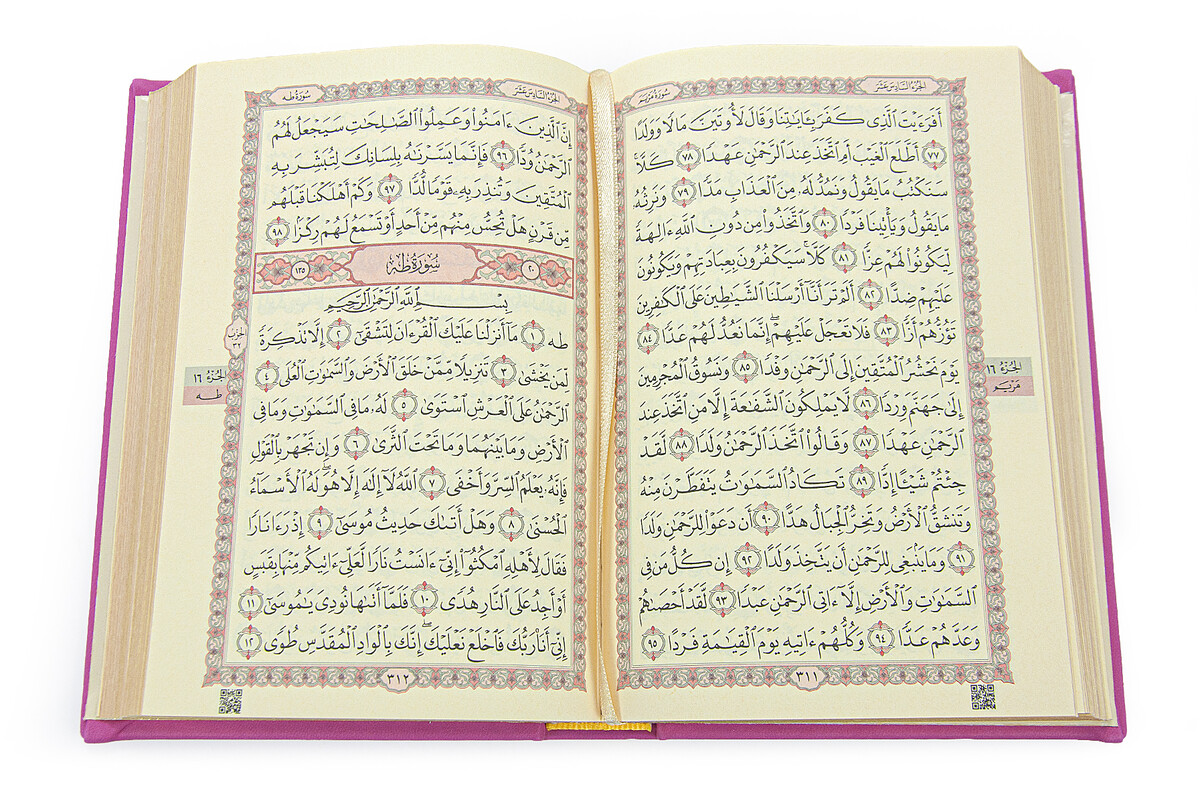 الجزء السادس عشر
سورة مريم
أَفَرَءَيْتَ ٱلَّذِى كَفَرَ بِـَٔايَٰتِنَا وَقَالَ لَأُوتَيَنَّ مَالًا وَوَلَدًا
٧٧ أَطَّلَعَ ٱلْغَيْبَ أَمِ ٱتَّخَذَ عِندَ ٱلرَّحْمَٰنِ عَهْدًا ٧٨ كَلَّا
سَنَكْتُبُ مَا يَقُولُ وَنَمُدُّ لَهُۥ مِنَ ٱلْعَذَابِ مَدًّا ٧٩ وَنَرِثُهُۥ
مَا يَقُولُ وَيَأْتِينَا فَرْدًا ٨٠ وَٱتَّخَذُوا۟ مِن دُونِ ٱللَّهِ ءَالِهَةً
لِّيَكُونُوا۟ لَهُمْ عِزًّا ٨١ كَلَّا سَيَكْفُرُونَ بِعِبَادَتِهِمْ وَيَكُونُونَ
عَلَيْهِمْ ضِدًّا ٨٢ أَلَمْ تَرَ أَنَّآ أَرْسَلْنَا ٱلشَّيَٰطِينَ عَلَى ٱلْكَٰفِرِينَ
تَؤُزُّهُمْ أَزًّا ٨٣ فَلَا تَعْجَلْ عَلَيْهِمْ ۖ إِنَّمَا نَعُدُّ لَهُمْ عَدًّا ٨٤
يَوْمَ نَحْشُرُ ٱلْمُتَّقِينَ إِلَى ٱلرَّحْمَٰنِ وَفْدًا ٨٥ وَنَسُوقُ ٱلْمُجْرِمِينَ
إِلَىٰ جَهَنَّمَ وِرْدًا ٨٦ لَّا يَمْلِكُونَ ٱلشَّفَٰعَةَ إِلَّا مَنِ ٱتَّخَذَ عِندَ
ٱلرَّحْمَٰنِ عَهْدًا ٨٧ وَقَالُوا۟ ٱتَّخَذَ ٱلرَّحْمَٰنُ وَلَدًا ٨٨ لَّقَدْ
جِئْتُمْ شَيْـًٔا إِدًّا ٨٩ تَكَادُ ٱلسَّمَٰوَٰتُ يَتَفَطَّرْنَ مِنْهُ
وَتَنشَقُّ ٱلْأَرْضُ وَتَخِرُّ ٱلْجِبَالُ هَدًّا ٩٠ أَن دَعَوْا۟ لِلرَّحْمَٰنِ وَلَدًا
٩١ وَمَا يَنۢبَغِى لِلرَّحْمَٰنِ أَن يَتَّخِذَ وَلَدًا ٩٢ إِن كُلُّ مَن فِى
ٱلسَّمَٰوَٰتِ وَٱلْأَرْضِ إِلَّآ ءَاتِى ٱلرَّحْمَٰنِ عَبْدًا ٩٣ لَّقَدْ أَحْصَىٰهُمْ
وَعَدَّهُمْ عَدًّا ٩٤ وَكُلُّهُمْ ءَاتِيهِ يَوْمَ ٱلْقِيَٰمَةِ فَرْدًا ٩٥
٣١١
الجزء ١٦
مريم
الجزء السادس عشر
سورة طه
إِنَّ ٱلَّذِينَ ءَامَنُوا۟ وَعَمِلُوا۟ ٱلصَّٰلِحَٰتِ سَيَجْعَلُ لَهُمُ
ٱلرَّحْمَٰنُ وُدًّا ٩٦ فَإِنَّمَا يَسَّرْنَٰهُ بِلِسَانِكَ لِتُبَشِّرَ بِهِ
ٱلْمُتَّقِينَ وَتُنذِرَ بِهِۦ قَوْمًا لُّدًّا ٩٧ وَكَمْ أَهْلَكْنَا قَبْلَهُم
مِّن قَرْنٍ هَلْ تُحِسُّ مِنْهُم مِّنْ أَحَدٍ أَوْ تَسْمَعُ لَهُمْ رِكْزًۢا ٩٨
٢٠ سورة طه ١٣٥
بِسْمِ ٱللَّهِ ٱلرَّحْمَٰنِ ٱلرَّحِيمِ
طه ١ مَآ أَنزَلْنَا عَلَيْكَ ٱلْقُرْءَانَ لِتَشْقَىٰٓ ٢ إِلَّا تَذْكِرَةً
لِّمَن يَخْشَىٰ ٣ تَنزِيلًا مِّمَّنْ خَلَقَ ٱلْأَرْضَ وَٱلسَّمَٰوَٰتِ ٱلْعُلَى ٤
ٱلرَّحْمَٰنُ عَلَى ٱلْعَرْشِ ٱسْتَوَىٰ ٥ لَهُۥ مَا فِى ٱلسَّمَٰوَٰتِ وَمَا فِى
ٱلْأَرْضِ وَمَا بَيْنَهُمَا وَمَا تَحْتَ ٱلثَّرَىٰ ٦ وَإِن تَجْهَرْ بِٱلْقَوْلِ
فَإِنَّهُۥ يَعْلَمُ ٱلسِّرَّ وَأَخْفَى ٧ ٱللَّهُ لَآ إِلَٰهَ إِلَّا هُوَ ۖ لَهُ ٱلْأَسْمَآءُ
ٱلْحُسْنَىٰ ٨ وَهَلْ أَتَىٰكَ حَدِيثُ مُوسَىٰٓ ٩ إِذْ رَءَا نَارًا
فَقَالَ لِأَهْلِهِ ٱمْكُثُوٓا۟ إِنِّىٓ ءَانَسْتُ نَارًا لَّعَلِّىٓ ءَاتِيكُم مِّنْهَا بِقَبَسٍ
أَوْ أَجِدُ عَلَى ٱلنَّارِ هُدًى ١٠ فَلَمَّآ أَتَىٰهَا نُودِىَ يَٰمُوسَىٰٓ ١١
إِنِّىٓ أَنَا۠ رَبُّكَ فَٱخْلَعْ نَعْلَيْكَ ۖ إِنَّكَ بِٱلْوَادِ ٱلْمُقَدَّسِ طُوًى ١٢
٣١٢
الحزب
٣٢
الجزء ١٦
طه